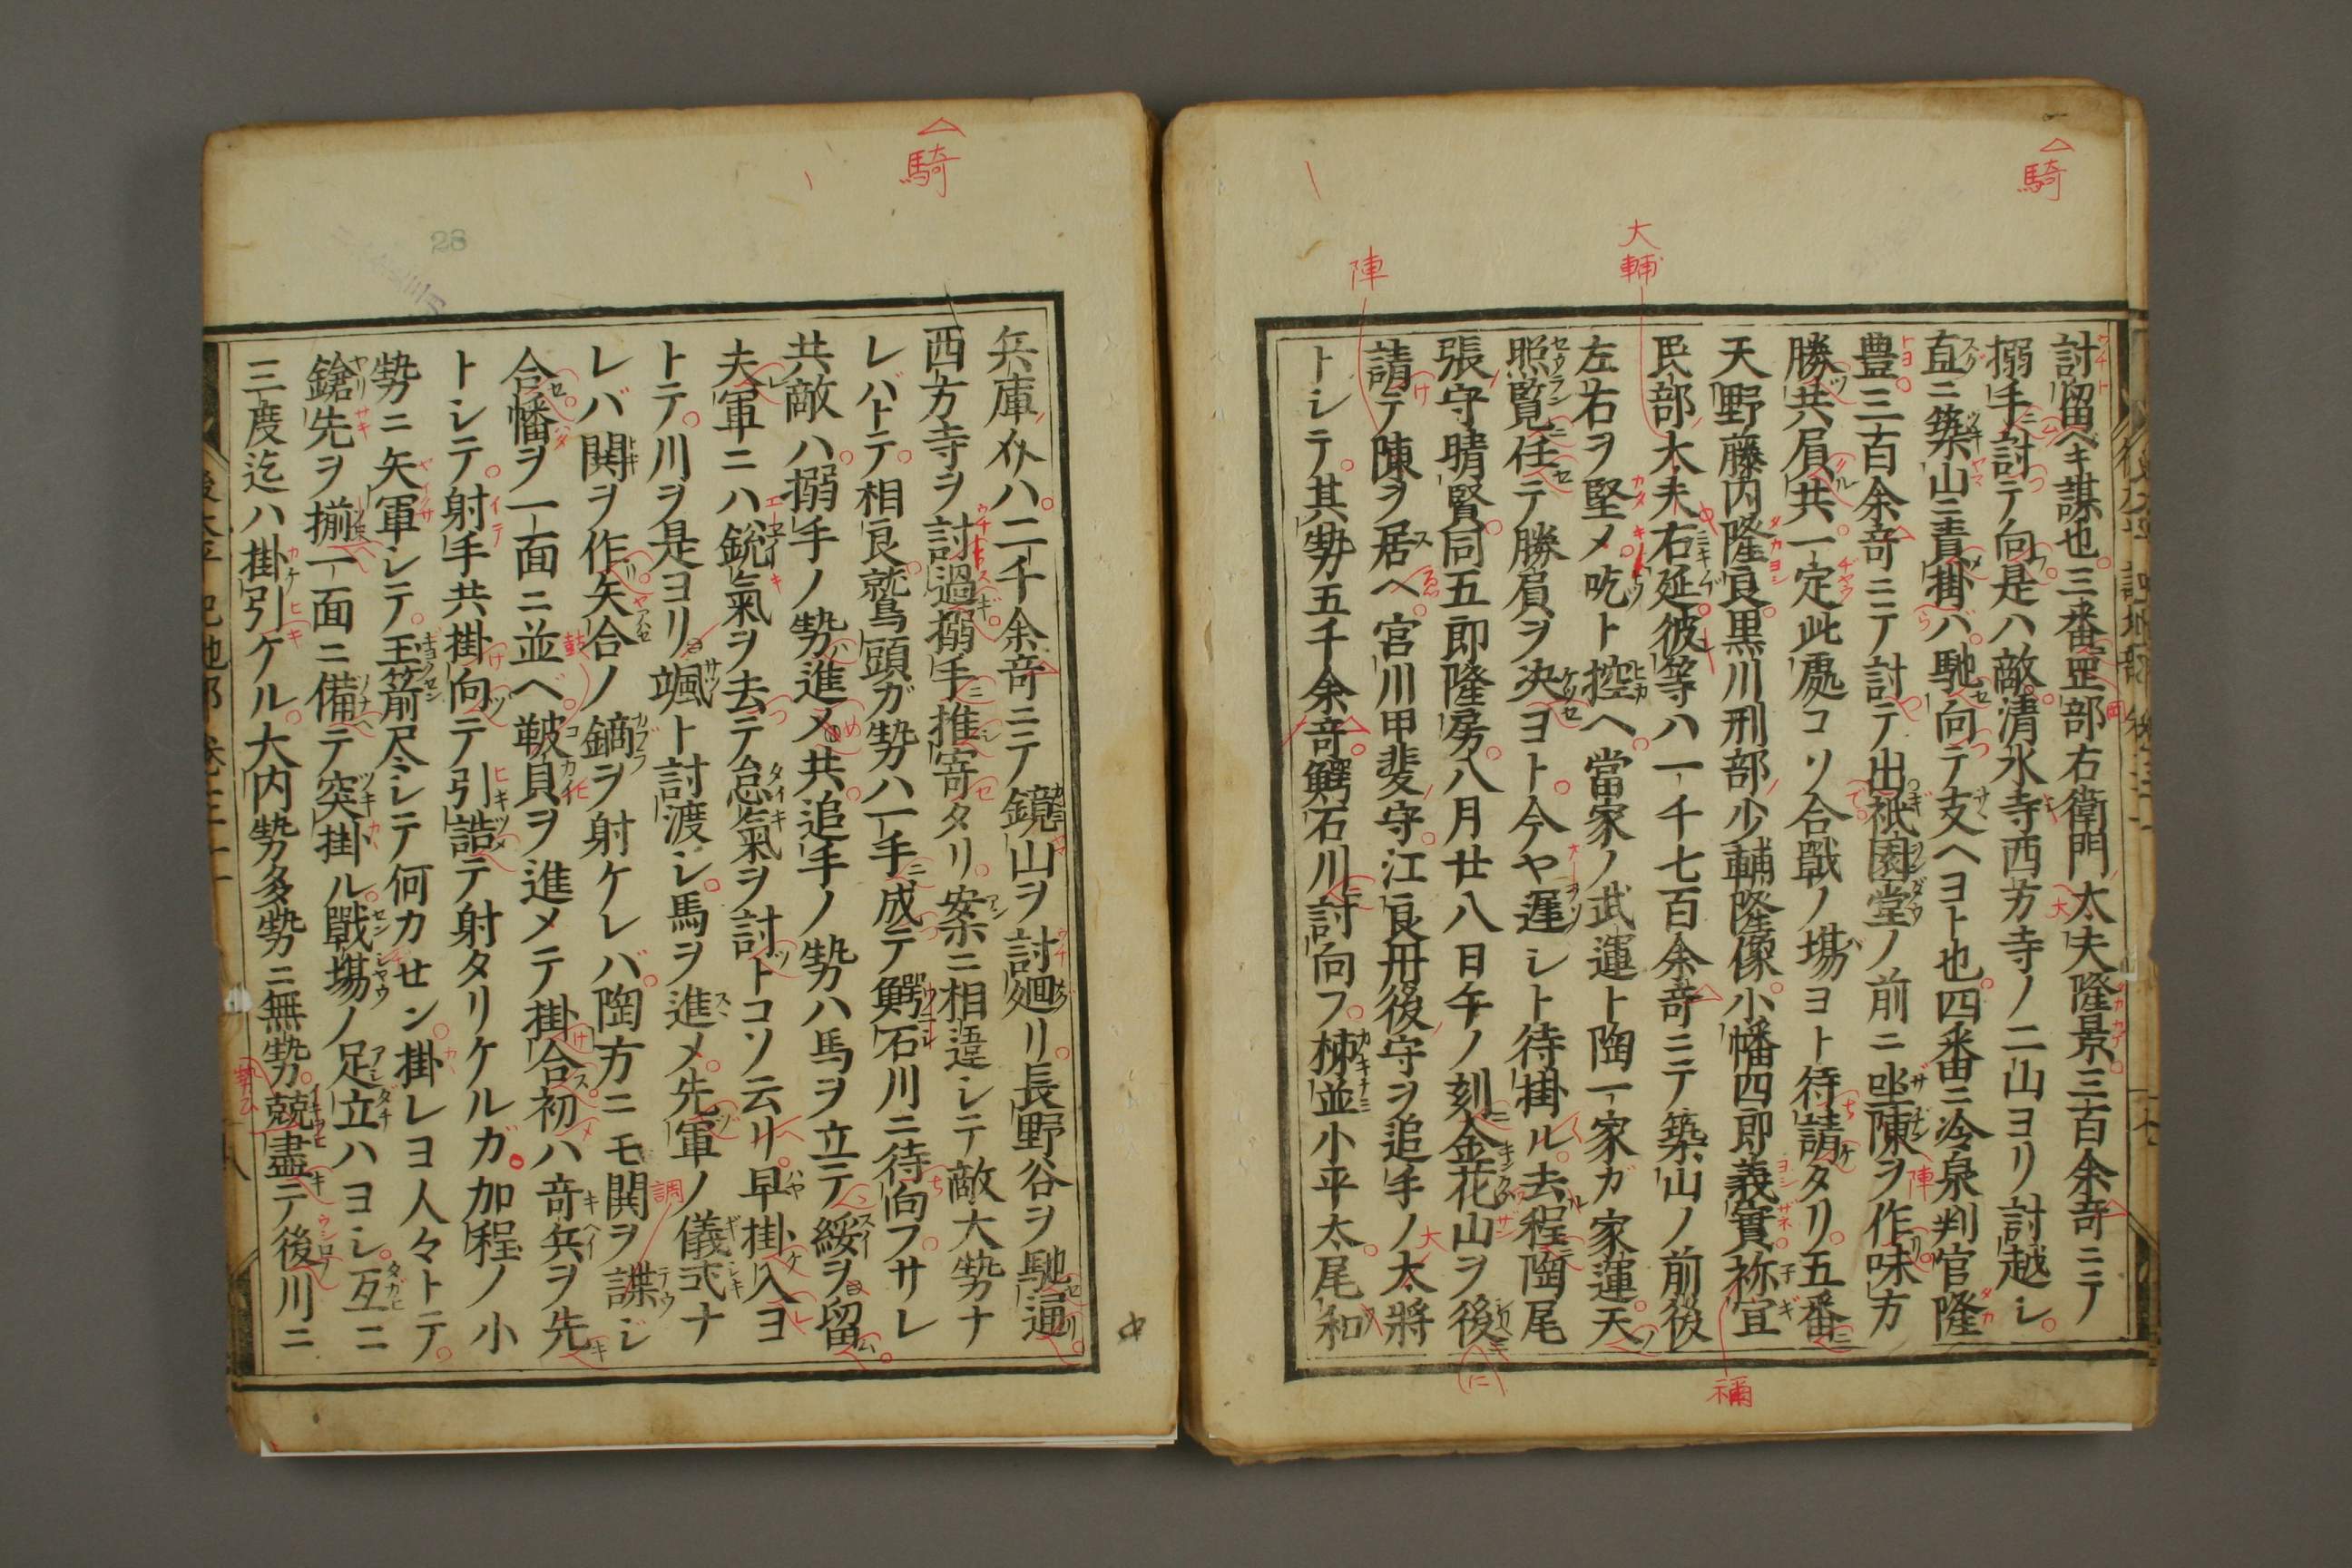 討留ヘキ謀也三番岡部右衛門大夫隆景三百余竒ニテ
搦手討テ向是ハ敵清水寺西方寺ノ二山ヨリ討越シ
直ニ築山ニ責掛バ馳向テ支ヘヨト也四番ニ冷泉判官隆
豊三百余竒ニテ討テ出祇園堂ノ前ニ坐陳ヲ作味方
勝共屓共一定此處コソ合戰ノ塲ヨト待請タリ五番
天野藤内隆良黒川刑部少輔隆像小幡四郎義實祢宜
民部大夫右延彼等ハ一千七百余竒ニテ築山ノ前後
左右ヲ堅メ吃ト控ヘ當家ノ武運ト陶一家ガ家運天
照覧任テ勝屓ヲ决ヨト今ヤ遲シト待掛ル去程陶尾
張守晴賢同五郎隆房八月廿八日午ノ刻金花山ヲ後
請テ陳ヲ居ヘ宮川甲斐守江良丹後守ヲ追手ノ大將
トシテ其勢五千余竒鰐石川討向フ柿並小平太尾和
兵庫ハ二千余竒ニテ鏡山ヲ討廻リ長野谷ヲ馳通
西方寺ヲ討過搦手推寄タリ案ニ相違シテ敵大勢ナ
レバトテ相良鷲頭ガ勢ハ一手成テ鰐石川ニ待向フサレ
共敵ハ搦手ノ勢進メ共追手ノ勢ハ馬ヲ立テ綏ヲ留
夫軍ニハ鋭氣ヲ去テ怠氣ヲ討トコソ云リ早掛入ヨ
トテ川ヲ是ヨリ颯ト討渡シ馬ヲ進メ先軍ノ儀式ナ
レバ鬨ヲ作矢合ノ鏑ヲ射ケレバ陶方ニモ鬨ヲ諜ジ
合幡ヲ一面ニ並ベ鞁貝ヲ進メテ掛合初ハ竒兵ヲ先
トシテ射手共掛向テ引詰テ射タリケルガ加程ノ小
勢ニ矢軍シテ王箭尽シテ何カセン掛レヨ人々トテ
鎗先ヲ揃一面ニ備テ突掛ル戰塲ノ足立ハヨシ互ニ
三度迄ハ掛引ケル大内勢多勢ニ無勢競盡テ後川ニ
騎
大輔
陣
騎
禰
調
陣
28